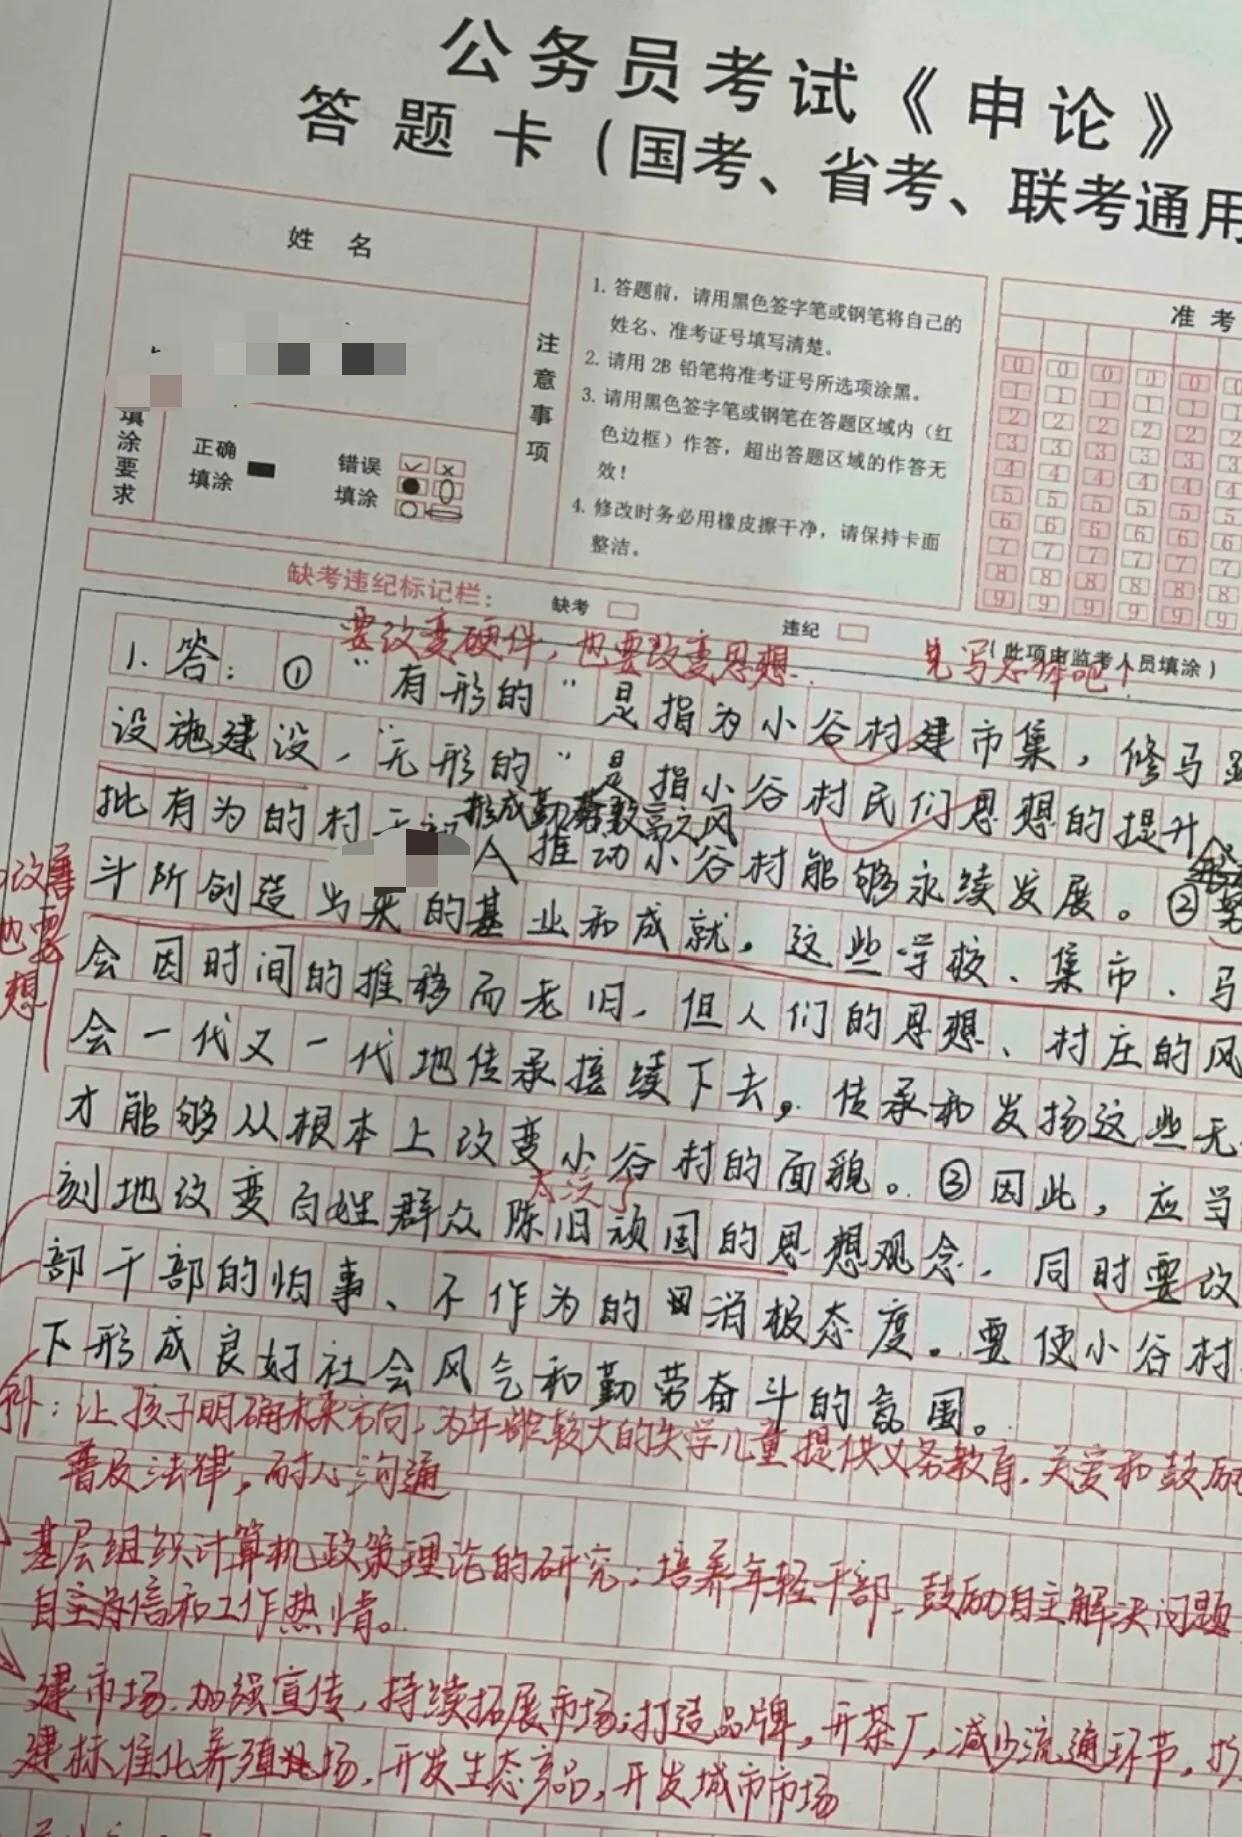 公务员考试《申论》
答题卡(国考、省考、联考通用
姓 名
注意事项
1. 答题前，请用黑色签字笔或钢笔将自己的
姓名、准考证号填写清楚。
2. 请用 2B 铅笔将准考证号所选项涂黑。
3. 请用黑色签字笔或钢笔在答题区域内（红
色边框）作答，超出答题区域的作答无
效！
4. 修改时务必用橡皮擦干净，请保持卡面
整洁。
准 考
0 0 0 0 0 0
1 1 1 1 1 1
2 2 2 2 2 2
3 3 3 3 3 3
4 4 4 4 4 4
5 5 5 5 5 5
6 6 6 6 6 6
7 7 7 7 7 7
8 8 8 8 8 8
9 9 9 9 9 9
填涂要求
正确填涂
错误填涂
缺考违纪标记栏：
缺考
违纪
（此项由监考人员填涂）
要改变硬件，也要改变思想
先写总体吧！
1. 答：①“有形的”是指为小谷村建市集，修马
设施建设，“无形的”是指小谷村民们思想的提升
批有为的村干部
形成勤劳致富之风
人推动小谷村能够永续发展。②
斗所创造出来的基业和成就。这些学校、集市、马
会因时间的推移而老旧，但人们的思想、村庄的风
会一代又一代地传承接续下去。传承和发扬这些无
才能够从根本上改变小谷村的面貌。③因此，应当
太泛了
刻地改变百姓群众陈旧顽固的思想观念，同时要改
部干部的怕事、不作为的消极态度。要使小谷村
下形成良好社会风气和勤劳奋斗的氛围。
改善
也要
想
补：让孩子明确未来方向，为年龄较大的失学儿童提供义务教育，关爱和鼓励
普及法律，耐心沟通
基层组织计算机政策理论的研究；培养年轻干部，鼓励自主解决问题
自信和工作热情。
建市场，加强宣传，持续拓展市场；打造品牌，开茶厂，减少流通环节，
建标准化养殖场，开发生态产品，开发城市市场